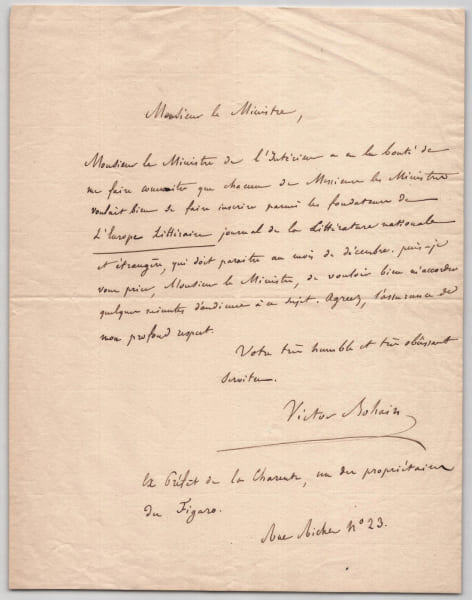 Monsieur le Ministre,
Monsieur le Ministre de l'Intérieur a eu la bonté de
me faire connaitre que chacun de Messieurs les Ministres
voulait bien se faire inscrire parmi les fondateurs de
L'Europe Littéraire journal de la littérature nationale
et étrangère, qui doit paraitre au mois de décembre. puis-je
vous prier, Monsieur le Ministre, de vouloir bien m'accorder
quelques minutes d'audience à ce sujet. Agréez, l'assurance de
mon profond respect.
Votre très humble et très obéissant
Serviteur.
Victor Bohain
Ex Préfet de la Charente, un des propriétaires
du Figaro.
Rue Richer N° 23.